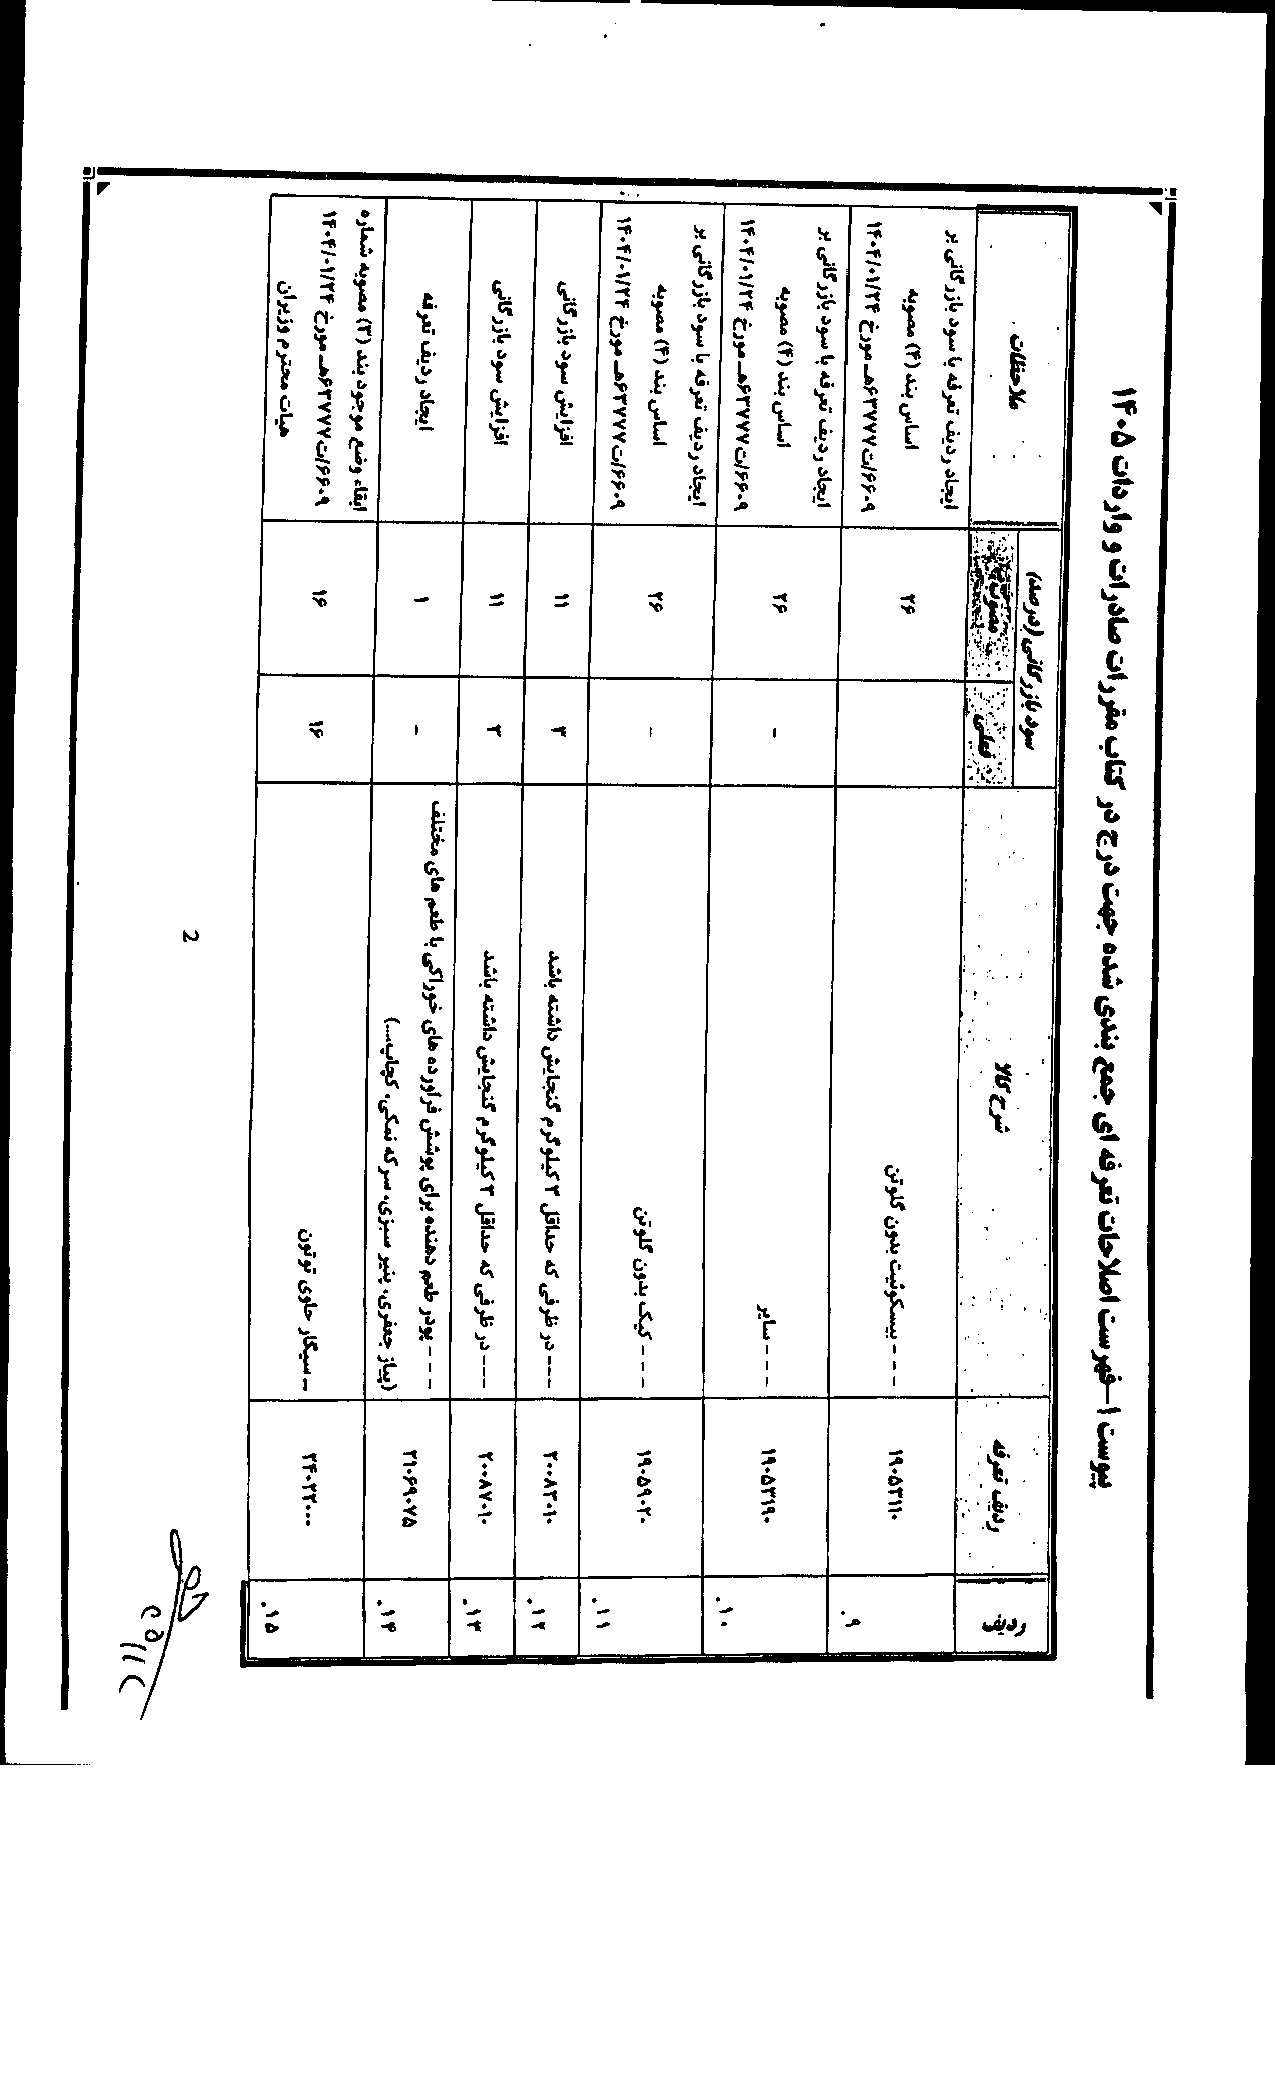 پیوست ۱-فهرست اصلاحات تعرفه ای جمع بندی شده جهت درج در کتاب مقررات صادرات و واردات ۱۴۰۵
ردیف
ردیف تعرفه
شرح کالا
سود بازرگانی (درصد)
فعلی
ملاحظات
۹.
۱۹۰۵۳۱۱۰
- - - بیسکوئیت بدون گلوتن
۲۶
ایجاد ردیف تعرفه با سود بازرگانی بر
اساس بند (۴) مصوبه
۶۶۰۹/ت۶۳۷۷۷هـ مورخ ۱۴۰۴/۰۱/۲۴
۱۰.
۱۹۰۵۳۱۹۰
- - - سایر
-
۲۶
ایجاد ردیف تعرفه با سود بازرگانی بر
اساس بند (۴) مصوبه
۶۶۰۹/ت۶۳۷۷۷هـ مورخ ۱۴۰۴/۰۱/۲۴
۱۱.
۱۹۰۵۹۰۲۰
- - - کیک بدون گلوتن
-
۲۶
ایجاد ردیف تعرفه با سود بازرگانی بر
اساس بند (۴) مصوبه
۶۶۰۹/ت۶۳۷۷۷هـ مورخ ۱۴۰۴/۰۱/۲۴
۱۲.
۲۰۰۸۳۰۱۰
--- در ظرفی که حداقل ۳ کیلوگرم گنجایش داشته باشد
۳
۱۱
افزایش سود بازرگانی
۱۳.
۲۰۰۸۷۰۱۰
--- در ظرفی که حداقل ۳ کیلوگرم گنجایش داشته باشد
۳
۱۱
افزایش سود بازرگانی
۱۴.
۲۱۰۶۹۰۷۵
- - - پودر طعم دهنده برای پوشش فراورده های خوراکی با طعم های مختلف
(پیاز جعفری، پنیر سبزی، سرکه نمکی، کچاپ...)
-
۱
ایجاد ردیف تعرفه
۱۵.
۲۴۰۲۲۰۰۰
- سیگار حاوی توتون
۱۶
۱۶
ابقاء وضع موجود بند (۳) مصوبه شماره
۶۶۰۹/ت۶۳۷۷۷هـ مورخ ۱۴۰۴/۰۱/۲۴
هیات محترم وزیران
2